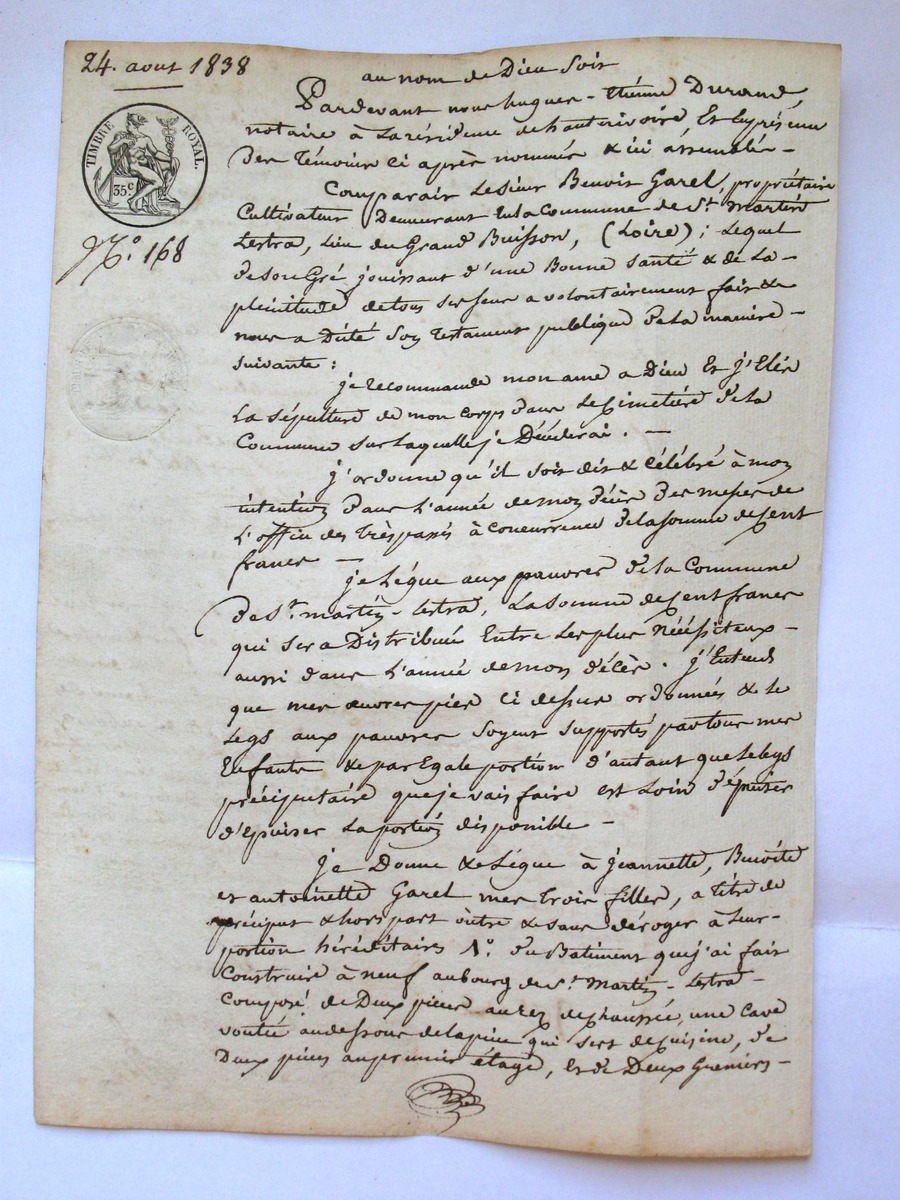 24. aout 1838
TIMBRE ROYAL.
35 c
N.° 168
au nom de Dieu soit
Pardevant nous hugues-Etienne Durand,
notaire à la résidence de hauterivoire, Et En présence
des témoins ci après nommés & ici assemblés –
Comparait Le sieur Benoit Garel, propriétaire
Cultivateur Demeurant En la Commune de St. Martin
Lestra, Lieu du Grand Buisson, (Loire); Lequel
de son Gré jouissant d'une Bonne santé & de La –
plénitude de tous ses sens a volontairement fait &
nous a Dicté Son testament publique de la manière –
suivante :
je recommande mon ame a Dieu Et j'Elis
La sépulture de mon corps dans Le Cimetière de la
Commune sur Laquelle je Décéderai. —
j'ordonne qu'il soit dit & Célébré à mon
intention Dans L'année de mon décès des messes de
L'office des trépassés à concurrence de la somme de Cent
francs —
je Lègue aux pauvres de la Commune
de St. martin-Lestra, La somme de Cent francs
qui sera Distribué Entre Les plus nécéssiteux –
aussi dans L'année de mon décès. j'Entends
que mes œuvres pies ci dessus ordonnés & le
Legs aux pauvres soyent supportés par tous mes
Enfants & par Egale portion d'autant que Le legs
préciputaire que je vais faire est Loin d'épuiser
d'épuiser La portion disponible –
je Donne & Lègue à jeannette, Benoite
et antoinette Garel mes trois filles, a titre de
préciput & hors part outre & sans déroger à Leur –
portion héréditaires 1°. du Batiment que j'ai fait
Construire à neuf au bourg de St. Martin-Lestra –
Composé de Deux pièces au rez de chaussée, une Cave
voutée au dessous de la pièce qui sert de Cuisine, de
Deux pièces au premier étage, Et de Deux Greniers –